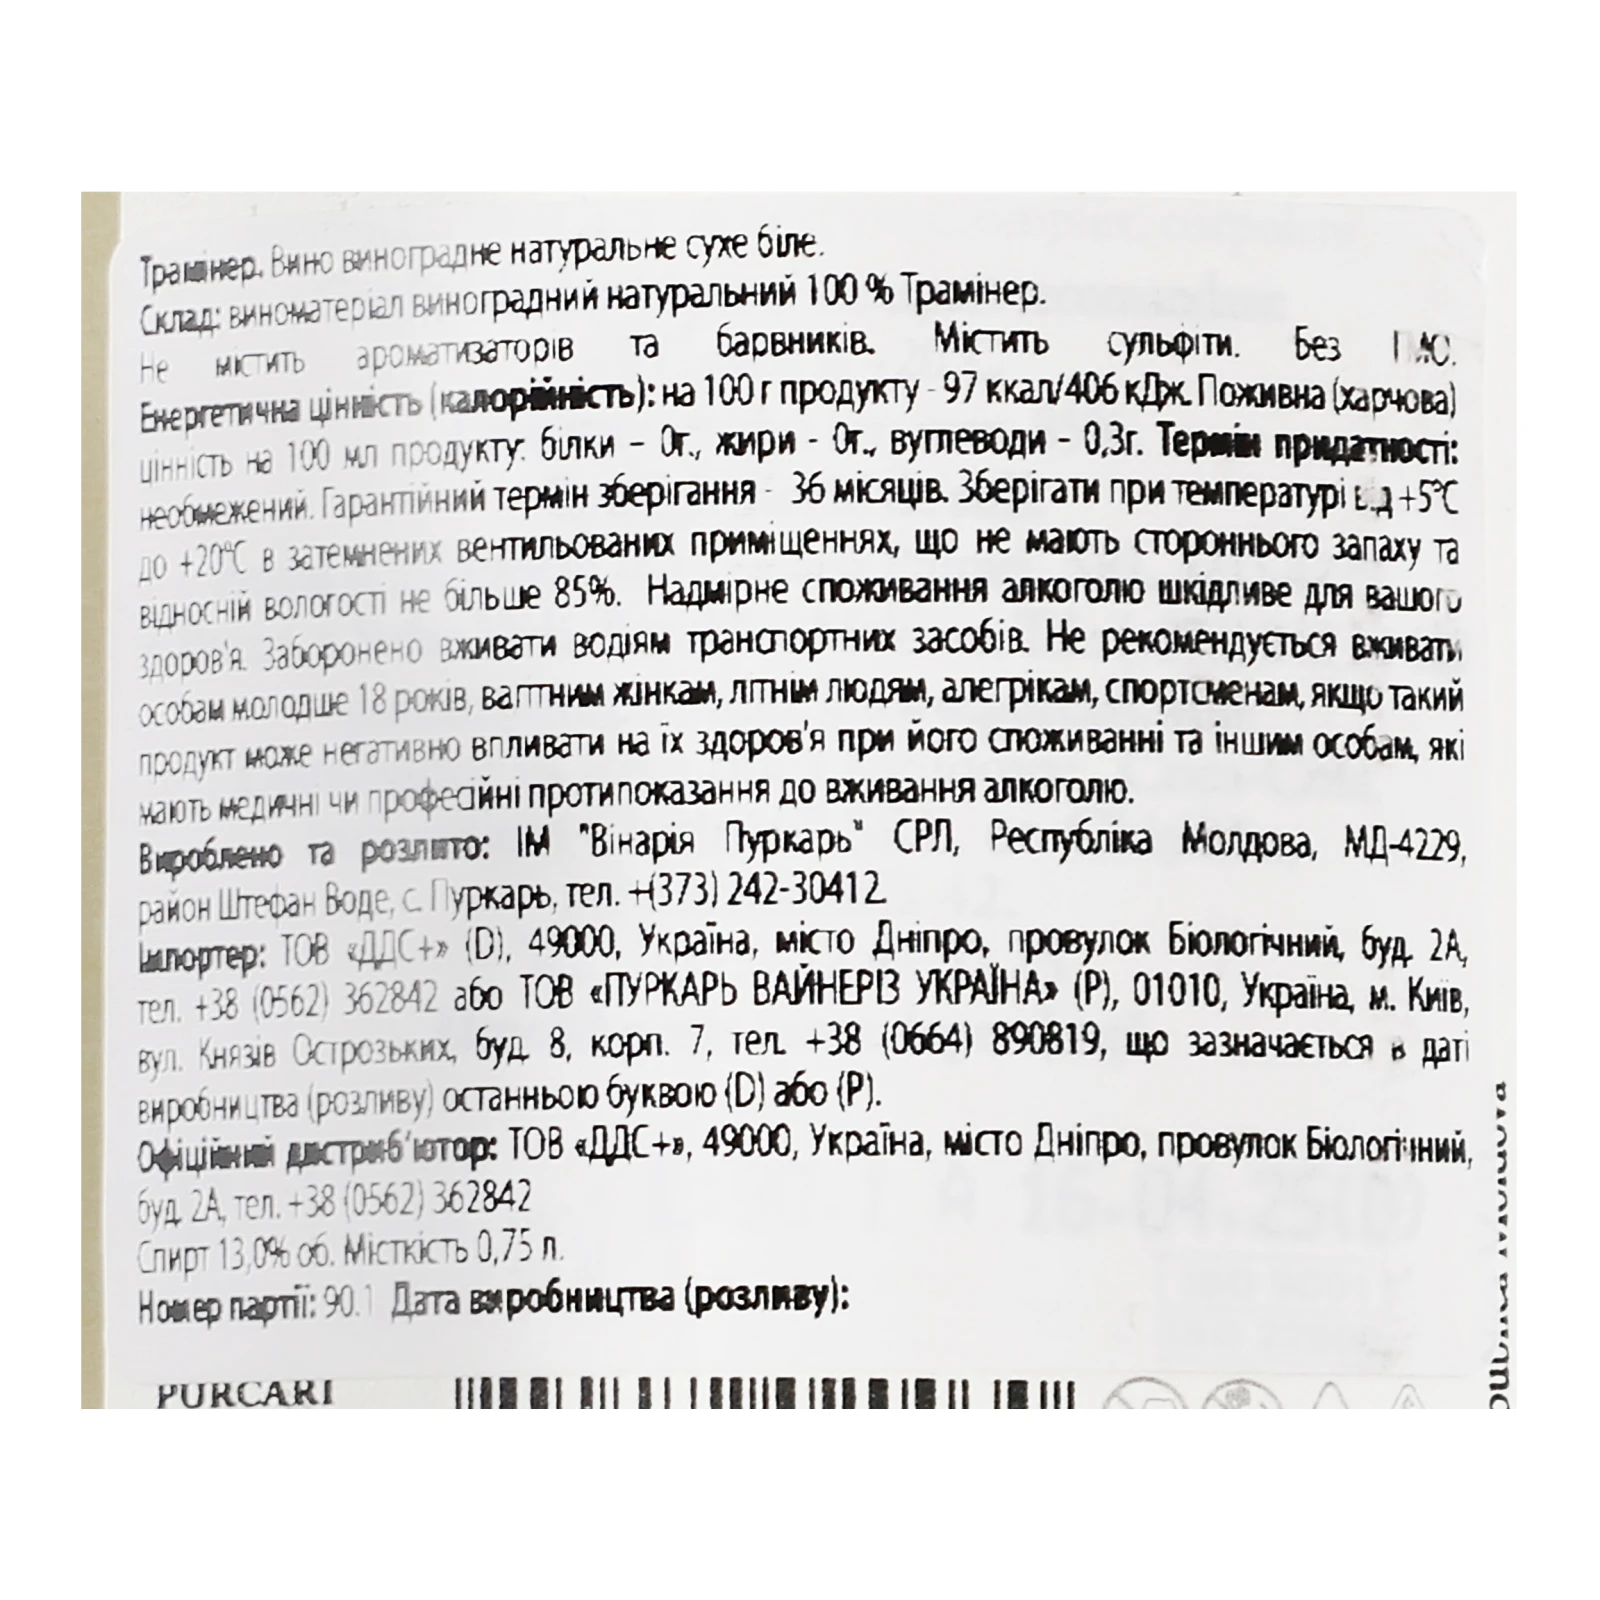 Трамінер. Вино виноградне натуральне сухе біле.
Склад: виноматеріал виноградний натуральний 100 % Трамінер.
Не містить ароматизаторів та барвників. Містить сульфіти. Без ГМО.
Енергетична цінність (калорійність): на 100 г продукту - 97 ккал/406 кДж. Поживна (харчова)
цінність на 100 мл продукту: білки – 0г., жири - 0г., вуглеводи – 0,3г. Термін придатності:
необмежений. Гарантійний термін зберігання - 36 місяців. Зберігати при температурі від +5°С
до +20°С в затемнених вентильованих приміщеннях, що не мають стороннього запаху та
відносній вологості не більше 85%. Надмірне споживання алкоголю шкідливе для вашого
здоров'я. Заборонено вживати водіям транспортних засобів. Не рекомендується вживати
особам молодше 18 років, вагітним жінкам, літнім людям, алегрікам, спортсменам, якщо такий
продукт може негативно впливати на їх здоров'я при його споживанні та іншим особам, які
мають медичні чи професійні протипоказання до вживання алкоголю.
Вироблено та розлито: ІМ "Вінарія Пуркарь" СРЛ, Республіка Молдова, МД-4229,
район Штефан Воде, с. Пуркарь, тел. +(373) 242-30412.
Імпортер: ТОВ «ДДС+» (D), 49000, Україна, місто Дніпро, провулок Біологічний, буд. 2А,
тел. +38 (0562) 362842 або ТОВ «ПУРКАРЬ ВАЙНЕРІЗ УКРАЇНА» (Р), 01010, Україна, м. Київ,
вул. Князів Острозьких, буд. 8, корп. 7, тел. +38 (0664) 890819, що зазначається в даті
виробництва (розливу) останньою буквою (D) або (Р).
Офіційний дистриб'ютор: ТОВ «ДДС+», 49000, Україна, місто Дніпро, провулок Біологічний,
буд. 2А, тел. +38 (0562) 362842
Спирт 13,0% об. Місткість 0,75 л.
Номер партії: 90.1 Дата виробництва (розливу):
PURCARI